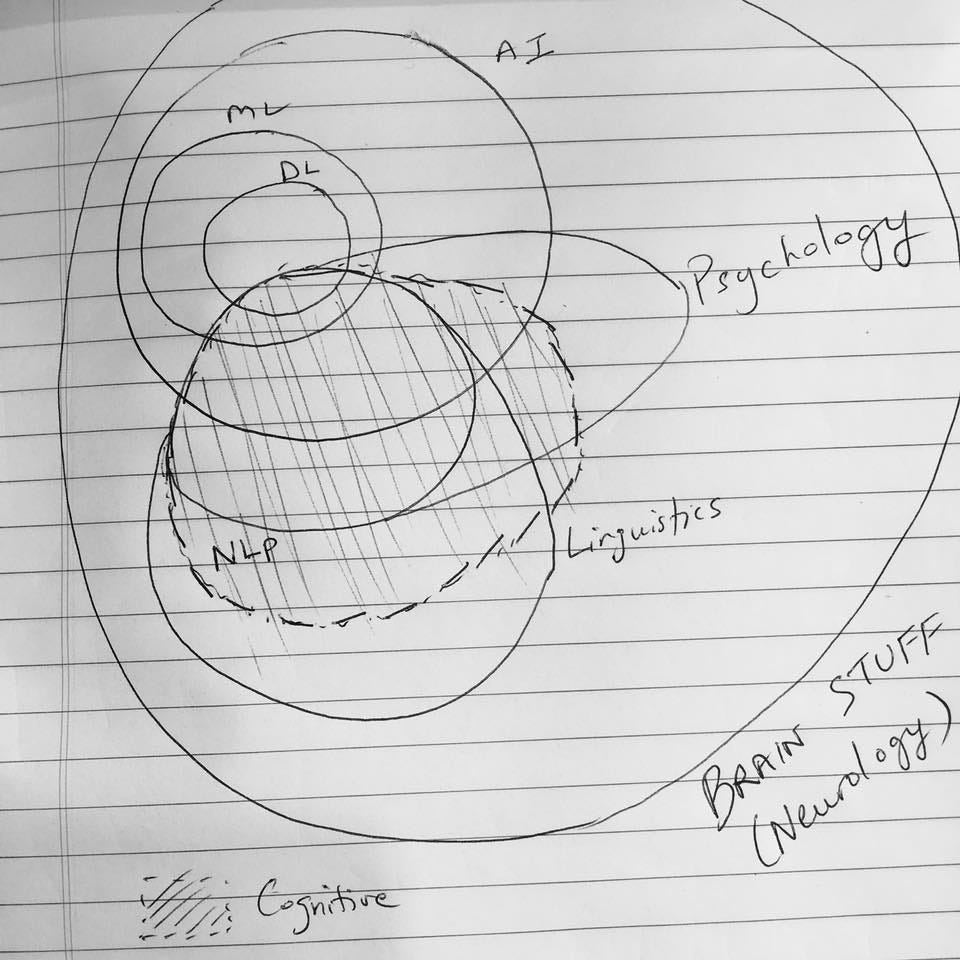 AI
ML
DL
Psychology
Linguistics
NLP
BRAIN STUFF
(Neurology)
Cognitive